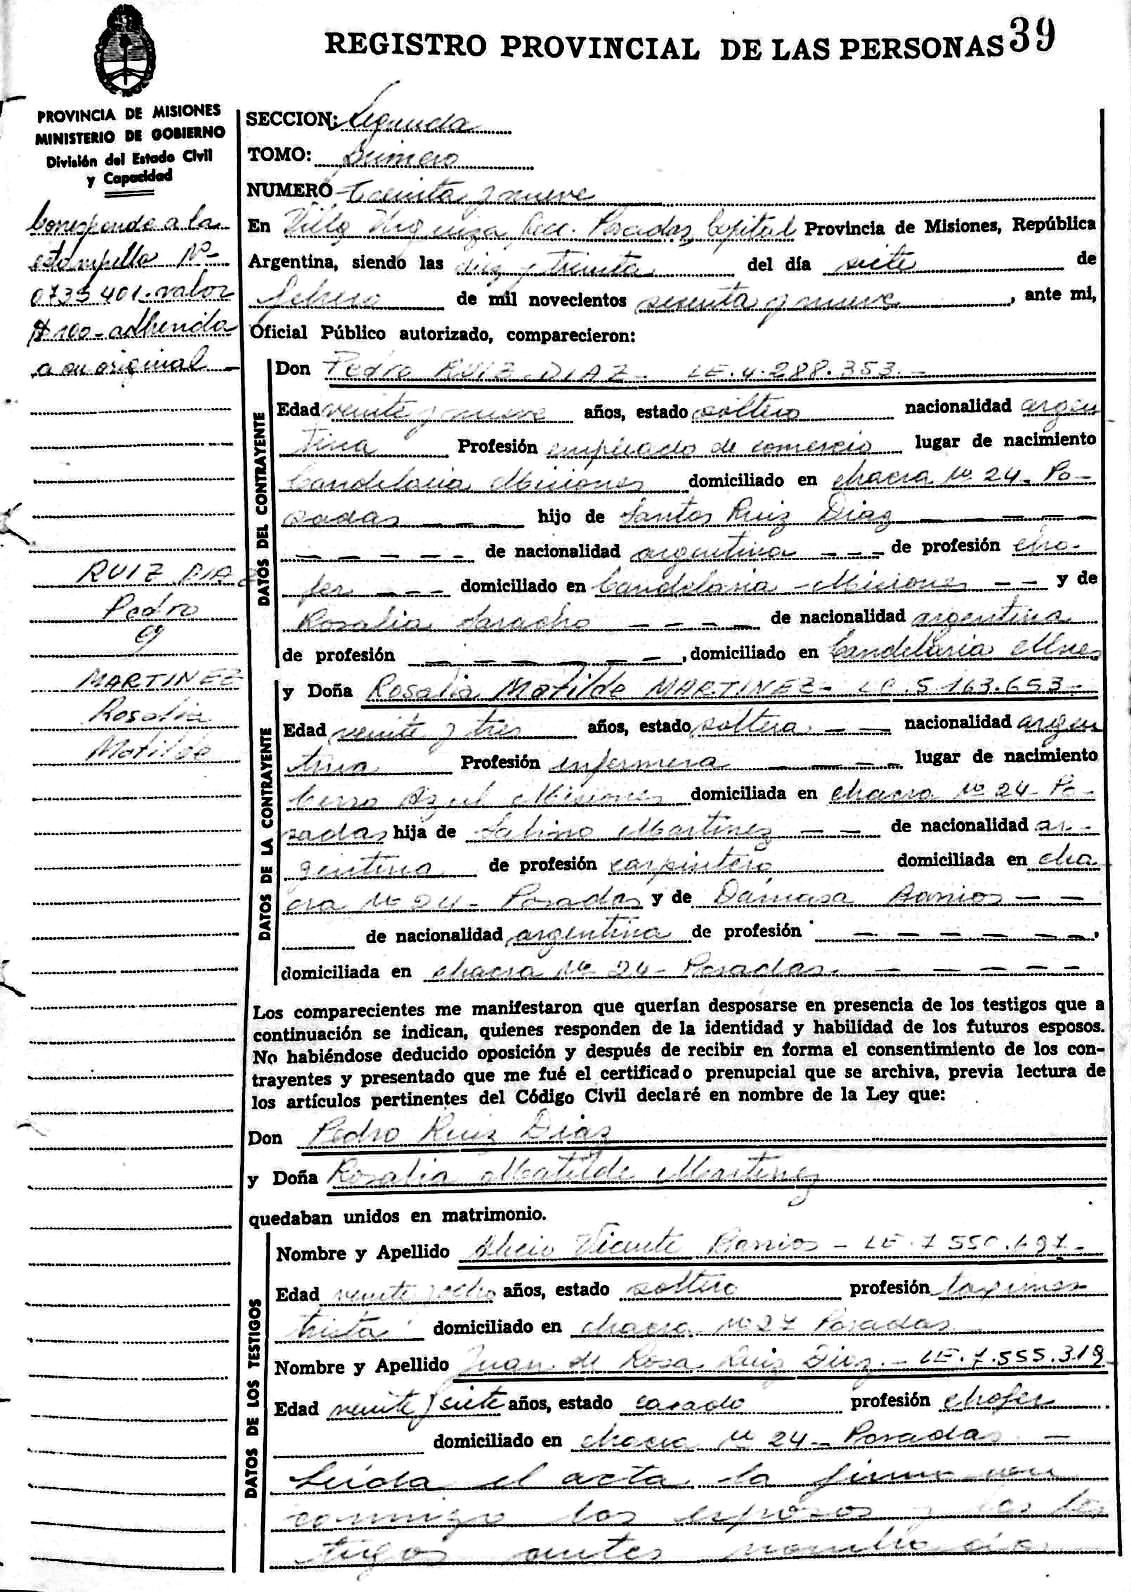 REGISTRO PROVINCIAL DE LAS PERSONAS 39
PROVINCIA DE MISIONES
MINISTERIO DE GOBIERNO
División del Estado Civil
y Capacidad
Corresponde a la
estampilla Nº
0735401. valor
$ 100 - adherida
a su original
RUIZ DIAZ
Pedro
y
MARTINEZ
Rosalia
Matilde
SECCION: Segunda
TOMO: Primero
NUMERO treinta y nueve
En Villa Urquiza, Posadas, Capital Provincia de Misiones, República
Argentina, siendo las diez y treinta del día siete de
febrero de mil novecientos sesenta y nueve, ante mi,
Oficial Público autorizado, comparecieron:
DATOS DEL CONTRAYENTE
Don Pedro RUIZ DIAZ - LE. 4.288.353.-
Edad veinte y nueve años, estado soltero nacionalidad argen
tina Profesión empleado de comercio lugar de nacimiento
Candelaria Misiones domiciliado en chacra Nº 24 - Po-
sadas - - - hijo de Santos Ruiz Diaz - - - - -
- - - - - de nacionalidad argentina - - - de profesión cho-
fer - - - domiciliado en Candelaria - Misiones - - y de
Rosalia Saracho - - - - de nacionalidad argentina
de profesión - - - - - - , domiciliado en Candelaria Mnes
DATOS DE LA CONTRAYENTE
y Doña Rosalia Matilde MARTINEZ - LC. 5.163.653 -
Edad veinte y tres años, estado soltera - - nacionalidad argen
tina Profesión enfermera - - - - lugar de nacimiento
Cerro Azul Misiones domiciliada en chacra Nº 24 - Po-
sadas hija de Sabino Martinez - - de nacionalidad ar-
gentina de profesión carpintero domiciliada en cha
cra Nº 24 - Posadas y de Dámasa Barrios - -
de nacionalidad argentina de profesión - - - - - - ,
domiciliada en chacra Nº 24 - Posadas. - - - - -
Los comparecientes me manifestaron que querían desposarse en presencia de los testigos que a
continuación se indican, quienes responden de la identidad y habilidad de los futuros esposos.
No habiéndose deducido oposición y después de recibir en forma el consentimiento de los con-
trayentes y presentado que me fué el certificado prenupcial que se archiva, previa lectura de
los artículos pertinentes del Código Civil declaré en nombre de la Ley que:
Don Pedro Ruiz Diaz
y Doña Rosalia Matilde Martinez
quedaban unidos en matrimonio.
DATOS DE LOS TESTIGOS
Nombre y Apellido Vicente Barrios - LE. 7.550.497 -
Edad veinte y ocho años, estado soltero profesión
domiciliado en chacra Nº 27 Posadas
Nombre y Apellido Juan de Rosa Ruiz Diaz - LE. 7.555.319
Edad veinte y siete años, estado casado profesión chofer
domiciliado en chacra Nº 24 - Posadas. -
Leída el acta la firman con
conmigo los esposos y los tes
tigos antes nombrados